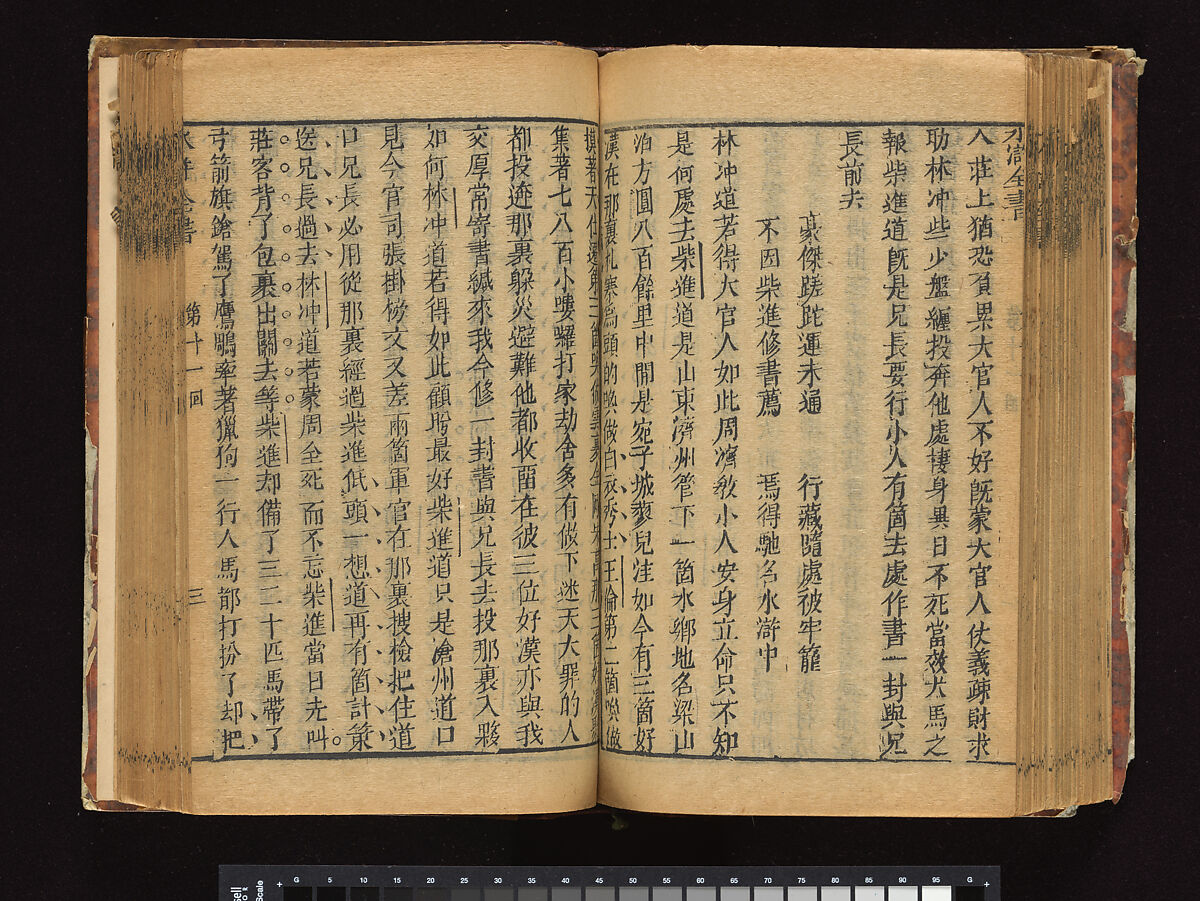 水滸全書
人庄上猶恐負累大官人不好既蒙大官人仗義疎財求
助林冲些少盤纏投奔他處棲身異日不死當效犬馬之
報柴進道既是兄長要行小人有箇去處作書一封與兄
長前去
豪傑蹉跎運未通 行藏隨處被牢籠
不因柴進修書薦 焉得馳名水滸中
林冲道若得大官人如此周濟教小人安身立命只不知
是何處去柴進道是山東濟州管下一箇水鄉地名梁山
泊方圓八百餘里中間是宛子城蓼兒洼如今有三箇好
漢在那裏扎寨爲頭的喚做白衣秀士王倫第二箇喚做
摸著天杜遷第三箇喚做雲裏金剛宋萬那三箇好漢聚
集著七八百小嘍囉打家劫舍多有做下迷天大罪的人
都投逩那裏躲災避難他都收畱在彼三位好漢亦與我
交厚常寄書緘來我今修一封書與兄長去投那裏入夥
如何林冲道若得如此顧盻最好柴進道只是滄州道口
見今官司張掛榜文又差兩箇軍官在那裏搜檢把住道
口兄長必用從那裏經過柴進低頭一想道再有箇計策
送兄長過去林冲道若蒙周全死而不忘柴進當日先叫
莊客背了包裹出關去等柴進却備了三二十匹馬帶了
弓箭旗鎗駕了鷹鵰牽著獵狗一行人馬都打扮了却把
水滸全書 第十一回 三
G 5 10 15 20 25 30 35 40 45 50 55 60 65 70 75 80 85 90 95 G
Scale